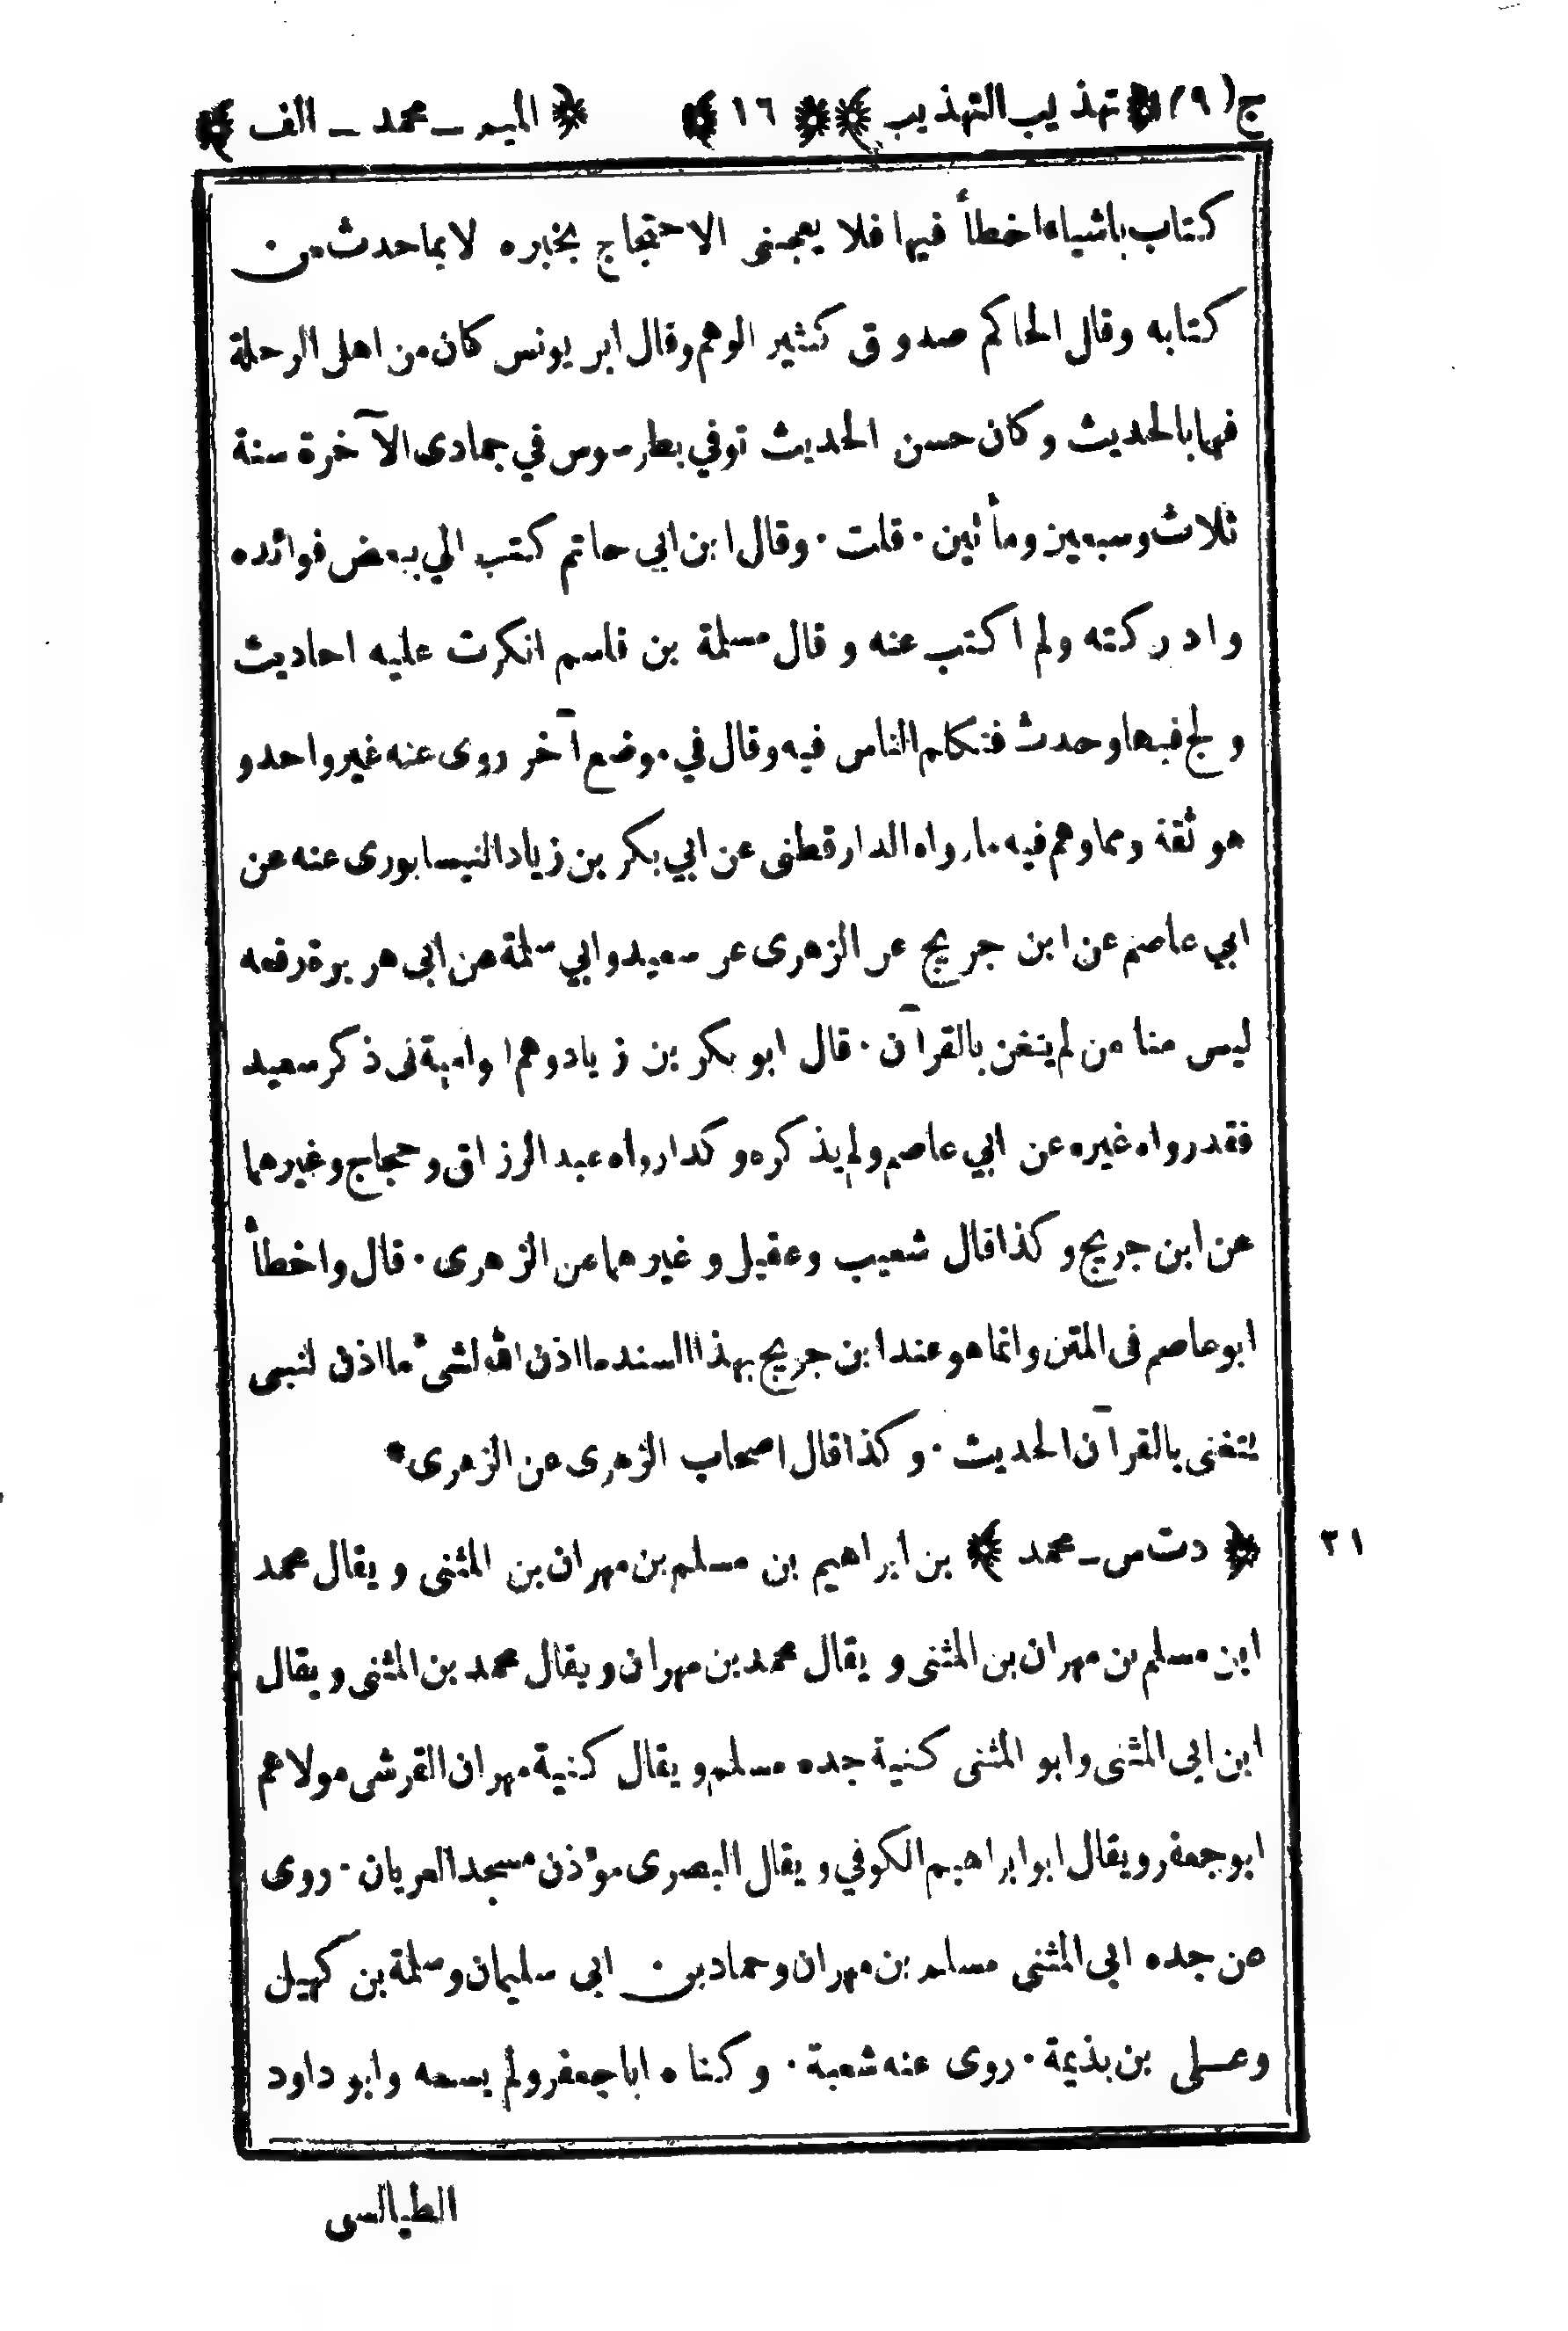 ج(٩) ﴿تهذيب التهذيب﴾ ﴿١٦﴾ ﴿الميم ـ محمد ـ الف﴾
كتاب باشياء اخطأ فيها فلا يعجبنى الاحتجاج بخبره لا بما حدث من
كتابه وقال الحاكم صدوق كثير الوهم وقال ابن يونس كان من اهل الرحلة
فهما بالحديث وكان حسن الحديث توفي بطرسوس في جمادى الآخرة سنة
ثلاث وسبعين ومأتين · قلت · وقال ابن ابي حاتم كتب الي ببعض فوائده
وادركته ولم اكتب عنه وقال مسلمة بن قاسم انكرت عليه احاديث
ولج فيها وحدث فتكلم الناس فيه وقال في موضع آخر روى عنه غير واحد و
هو ثقة ومما وهم فيه ما رواه الدارقطنى عن ابي بكر بن زياد النيسابورى عنه عن
ابي عاصم عن ابن جريج عن الزهرى عن سعيد وابي سلمة عن ابى هريرة رفعه
ليس منا من لم يتغن بالقرآن · قال ابو بكر بن زياد وهم ابو امية فى ذكر سعيد
فقد رواه غيره عن ابي عاصم ولم يذكره وكذا رواه عبد الرزاق وحجاج وغيرهما
عن ابن جريج وكذا قال شعيب وعقيل وغيرهما عن الزهرى · قال واخطأ
ابو عاصم فى المتن وانما هو عند ابن جريج بهذا السند ما اذن الله لشىء ما اذن لنبى
يتغنى بالقرآن الحديث · وكذا قال اصحاب الزهرى عن الزهرى*
٢١ ﴿دت س ـ محمد﴾ بن ابراهيم بن مسلم بن مهران بن المثنى ويقال محمد
ابن مسلم بن مهران بن المثنى ويقال محمد بن مهران ويقال محمد بن المثنى ويقال
ابن ابى المثنى وابو المثنى كنية جده مسلم ويقال كنية مهران القرشى مولاهم
ابو جعفر ويقال ابو ابراهيم الكوفي ويقال البصرى مؤذن مسجد العريان · روى
عن جده ابى المثنى مسلم بن مهران وحماد بن ابى سليمان وسلمة بن كهيل
وعلى بن بذيمة · روى عنه شعبة · وكناه ابا جعفر ولم يسمه وابو داود
الطيالسى